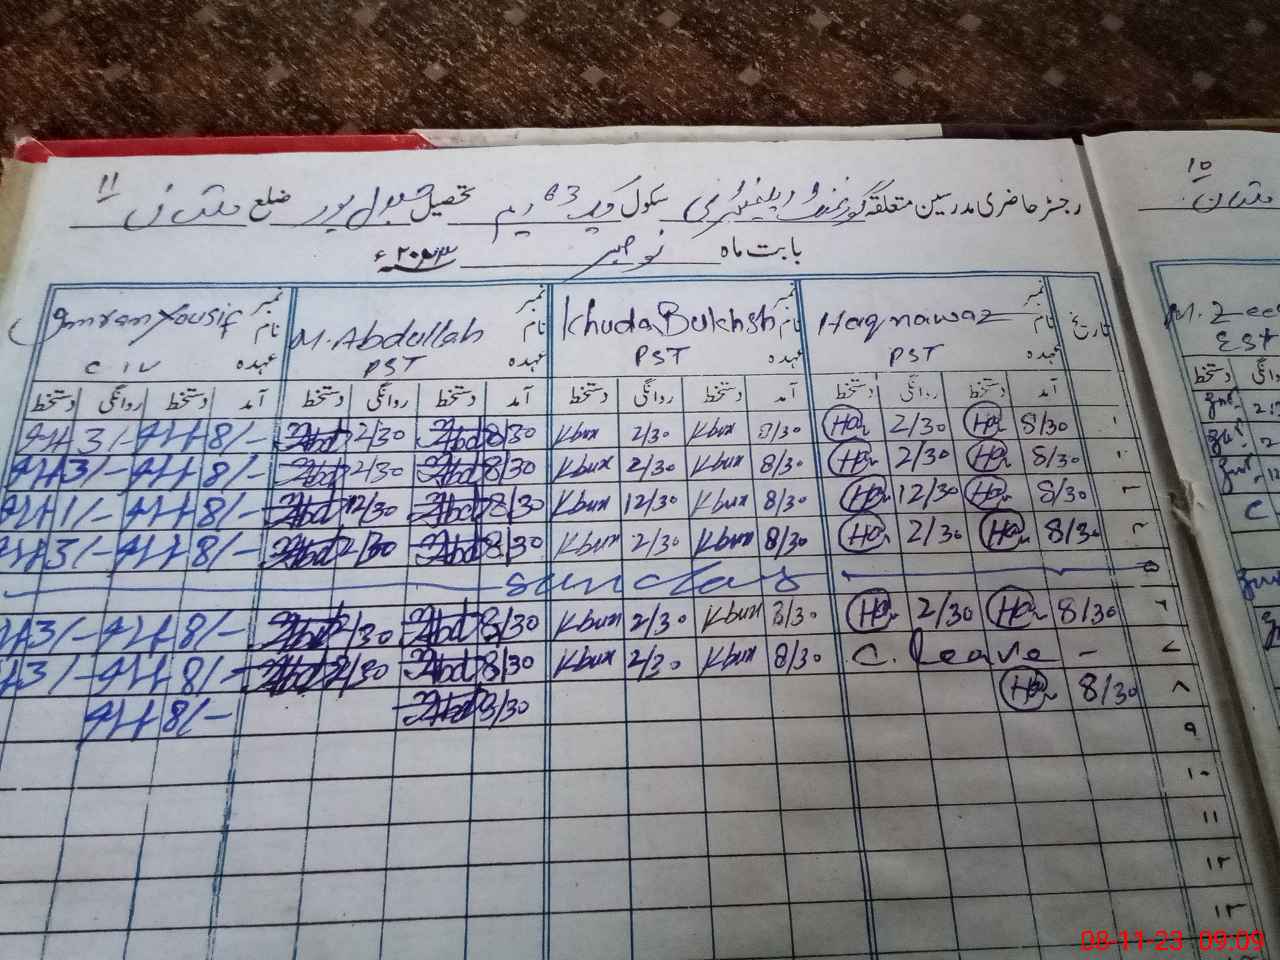 ۱۱
رجسٹر حاضری مدرسین متعلقہ گورنمنٹ ایلیمنٹری سکول چک 63 ایم تحصیل جلال پور ضلع ملتان
بابت ماہ نومبر ۲۰۲۳ء
تاریخ نمبر نام عہدہ Haqnawaz PST
نمبر نام عہدہ Khuda Bukhsh PST
نمبر نام عہدہ M. Abdullah PST
نمبر نام عہدہ Imran Yousif C IV
آمد دستخط روانگی دستخط آمد دستخط روانگی دستخط آمد دستخط روانگی دستخط آمد دستخط روانگی دستخط
۱ 8/30 Haq 2/30 Haq 8/30 Kbux 2/30 Kbux 8/30 Abd 2/30 Abd 8/- 3/-
۲ 8/30 Haq 2/30 Haq 8/30 Kbux 2/30 Kbux 8/30 Abd 2/30 Abd 8/- 3/-
۳ 8/30 Haq 12/30 Haq 8/30 Kbux 12/30 Kbux 8/30 Abd 12/30 Abd 8/- 1/-
۴ 8/30 Haq 2/30 Haq 8/30 Kbux 2/30 Kbux 8/30 Abd 2/30 Abd 8/- 3/-
۵ Sunday
۶ 8/30 Haq 2/30 Haq 8/30 Kbux 2/30 Kbux 8/30 Abd 2/30 Abd 8/- 3/-
۷ C. Leave - 8/30 Kbux 2/30 Kbux 8/30 Abd 2/30 Abd 8/- 3/-
۸ 8/30 Haq 8/30 Abd 8/-
۹
۱۰
۱۱
۱۲
۱۳
۱۰
ملتان
M. Zee
EST
دستخط
08-11-23 09:09